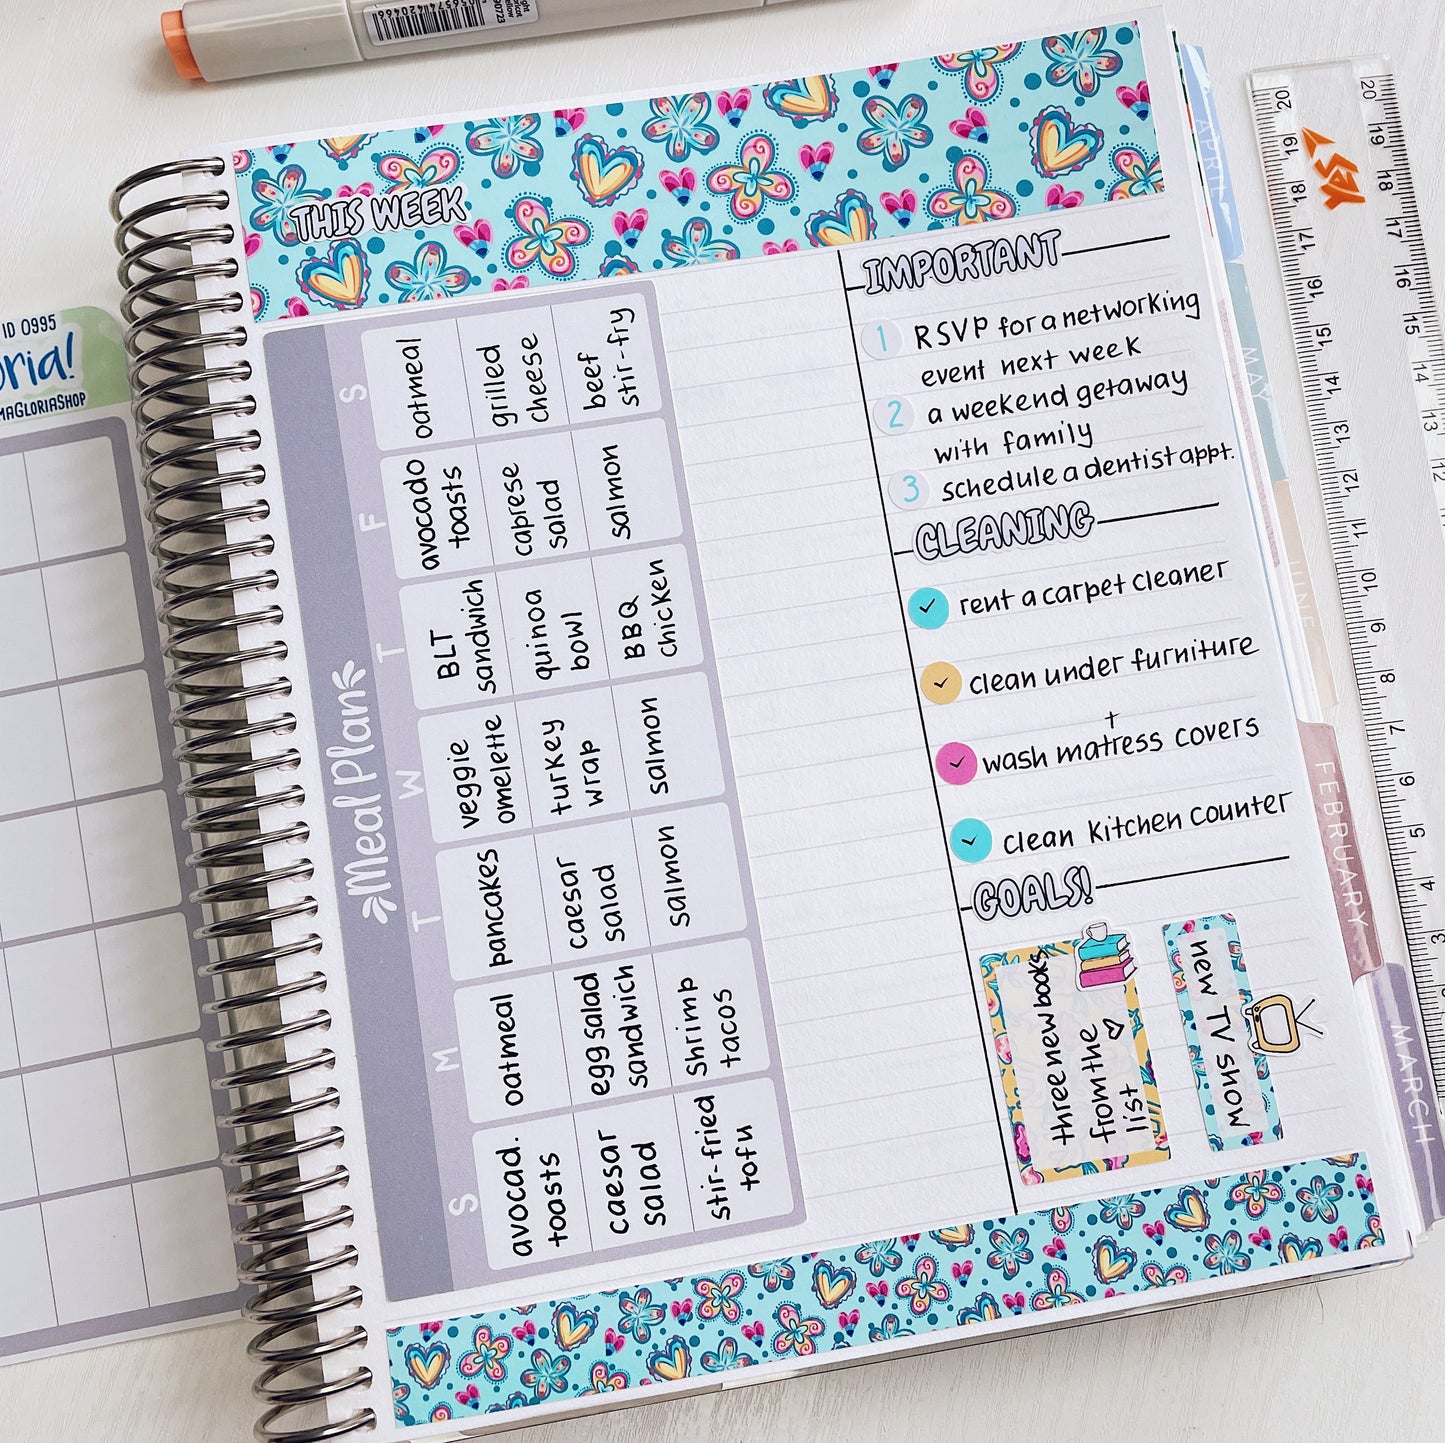 ght
ricot
ellow
00723
4565744204​66
ID 0995
oria!
MAGLORIASHOP
THIS WEEK
Meal Plan
S
avocad.
toasts
caesar
salad
stir-fried
tofu
M
oatmeal
egg salad
sandwich
Shrimp
tacos
T
pancakes
caesar
salad
salmon
W
veggie
omelette
turkey
wrap
salmon
T
BLT
sandwich
quinoa
bowl
BBQ
chicken
F
avocado
toasts
caprese
salad
salmon
S
oatmeal
grilled
cheese
beef
stir-fry
IMPORTANT
1 RSVP for a networking
event next week
2 a weekend getaway
with family
3 schedule a dentist appt.
CLEANING
rent a carpet cleaner
clean under furniture
t
wash matress covers
clean kitchen counter
GOALS!
three new books
from the
list
new TV shows
APRIL
MAY
JUNE
FEBRUARY
MARCH
YES
20
19
18
17
16
15
14
13
12
11
10
9
8
7
6
5
4
3
2
20
19
18
17
16
15
14
13
12